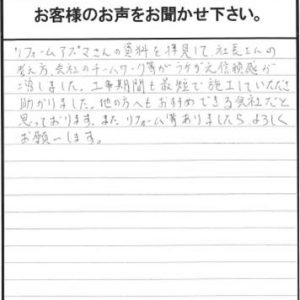 お客様のお声をお聞かせ下さい。
リフォームアズマさんの資料を拝見して、社長さんの
考え方、会社のチームワーク等がうかがえ信頼感が
増しました。工事期間も最短で施工していただき
助かりました。他の方へもお勧めできる会社だと
思っております。また、リフォーム等ありましたらよろしく
お願いします。